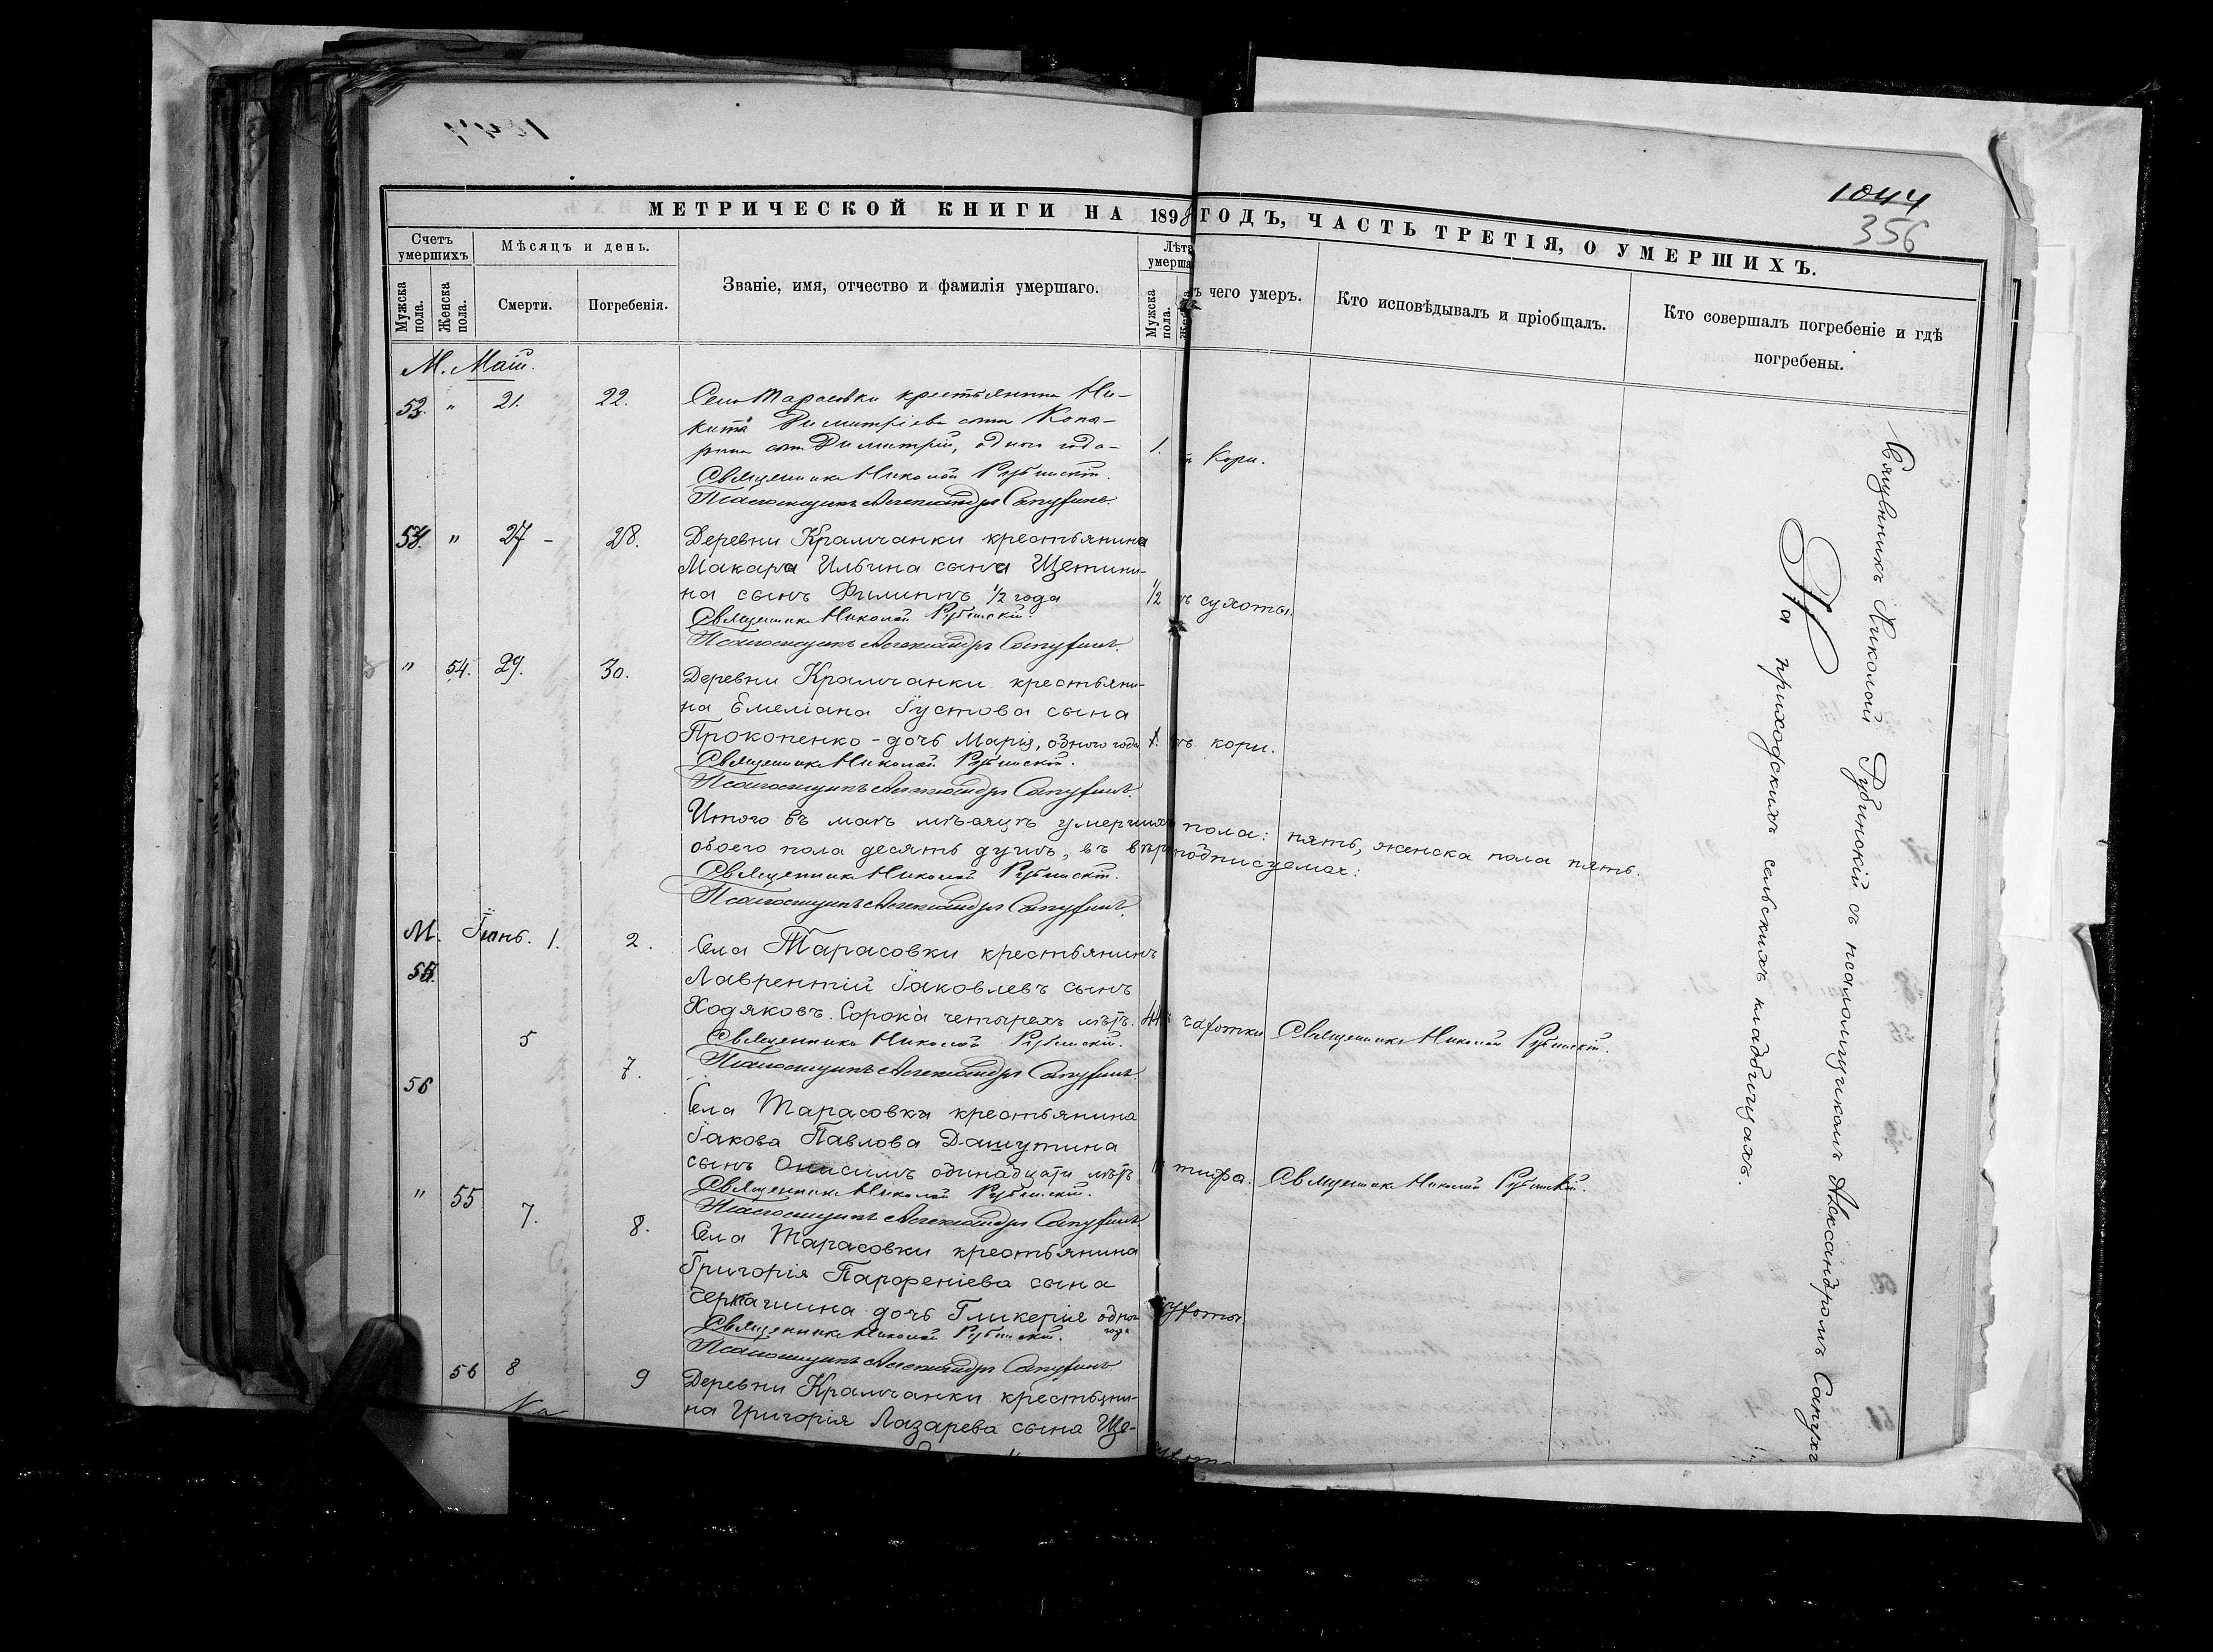 1044
356
МЕТРИЧЕСКОЙ КНИГИ НА 1898 ГОДЪ, ЧАСТЬ ТРЕТІЯ, О УМЕРШИХЪ.
Счетъ умершихъ
Мѣсяцъ и день.
Званіе, имя, отчество и фамилія умершаго.
Лѣта
умерша
ъ чего умеръ.
Кто исповѣдывалъ и пріобщалъ.
Кто совершалъ погребеніе и гдѣ
погребены.
Мужска пола.
Женска пола.
Смерти.
Погребенія.
Мужска пола.
М. Маій.
53. " 21. 22. Села Тарасовки крестьянина Ни-
киты Димитріева сына
сынъ Димитрій, одного года 1. Кори.
Священникъ Николай Рубинскій.
Псаломщикъ Александръ
54. " 27 - 28. Деревни Крамчанки крестьянина
Макара Ильина сына Щетини-
на сынъ Филиппъ 1/2 года 1/2 ъ сухоты.
Священникъ Николай Рубинскій.
Псаломщикъ Александръ
" 54. 29. 30. Деревни Крамчанки крестьяни-
на Емеліана Іустова сына
Прокопенко - дочь Марія, одного года 1. ъ кори.
Священникъ Николай Рубинскій.
Псаломщикъ Александръ
Итого въ маѣ мѣсяцѣ умершихъ пола: пять, женска пола пять.
обоего пола десять душъ, въ подписуемся:
Священникъ Николай Рубинскій.
Псаломщикъ Александръ
М. Іюнь. 1. 2. Села Тарасовки крестьянинъ
55. Лаврентій Іаковлевъ сынъ
Ходяковъ. Сорока четырехъ лѣтъ. 44 чахотки Священникъ Николай Рубинскій.
Священникъ Николай Рубинскій.
Псаломщикъ Александръ
56 5 7. Села Тарасовки крестьянина
Іакова Павлова Дашутина
сынъ Онисимъ одинадцати лѣтъ 11 тифа. Священникъ Николай Рубинскій.
Священникъ Николай Рубинскій.
Псаломщикъ Александръ
" 55 7. 8. Села Тарасовки крестьянина
Григорія Парфеніева сына
Черкашина дочь Гликерія одного года сухоты
Священникъ Николай Рубинскій.
Псаломщикъ Александръ
56 8 9 Деревни Крамчанки крестьяни-
на Григорія Лазарева сына Ще-
Священникъ Николай Рубинскій съ псаломщикомъ Александромъ
На приходскихъ сельскихъ кладбищахъ.